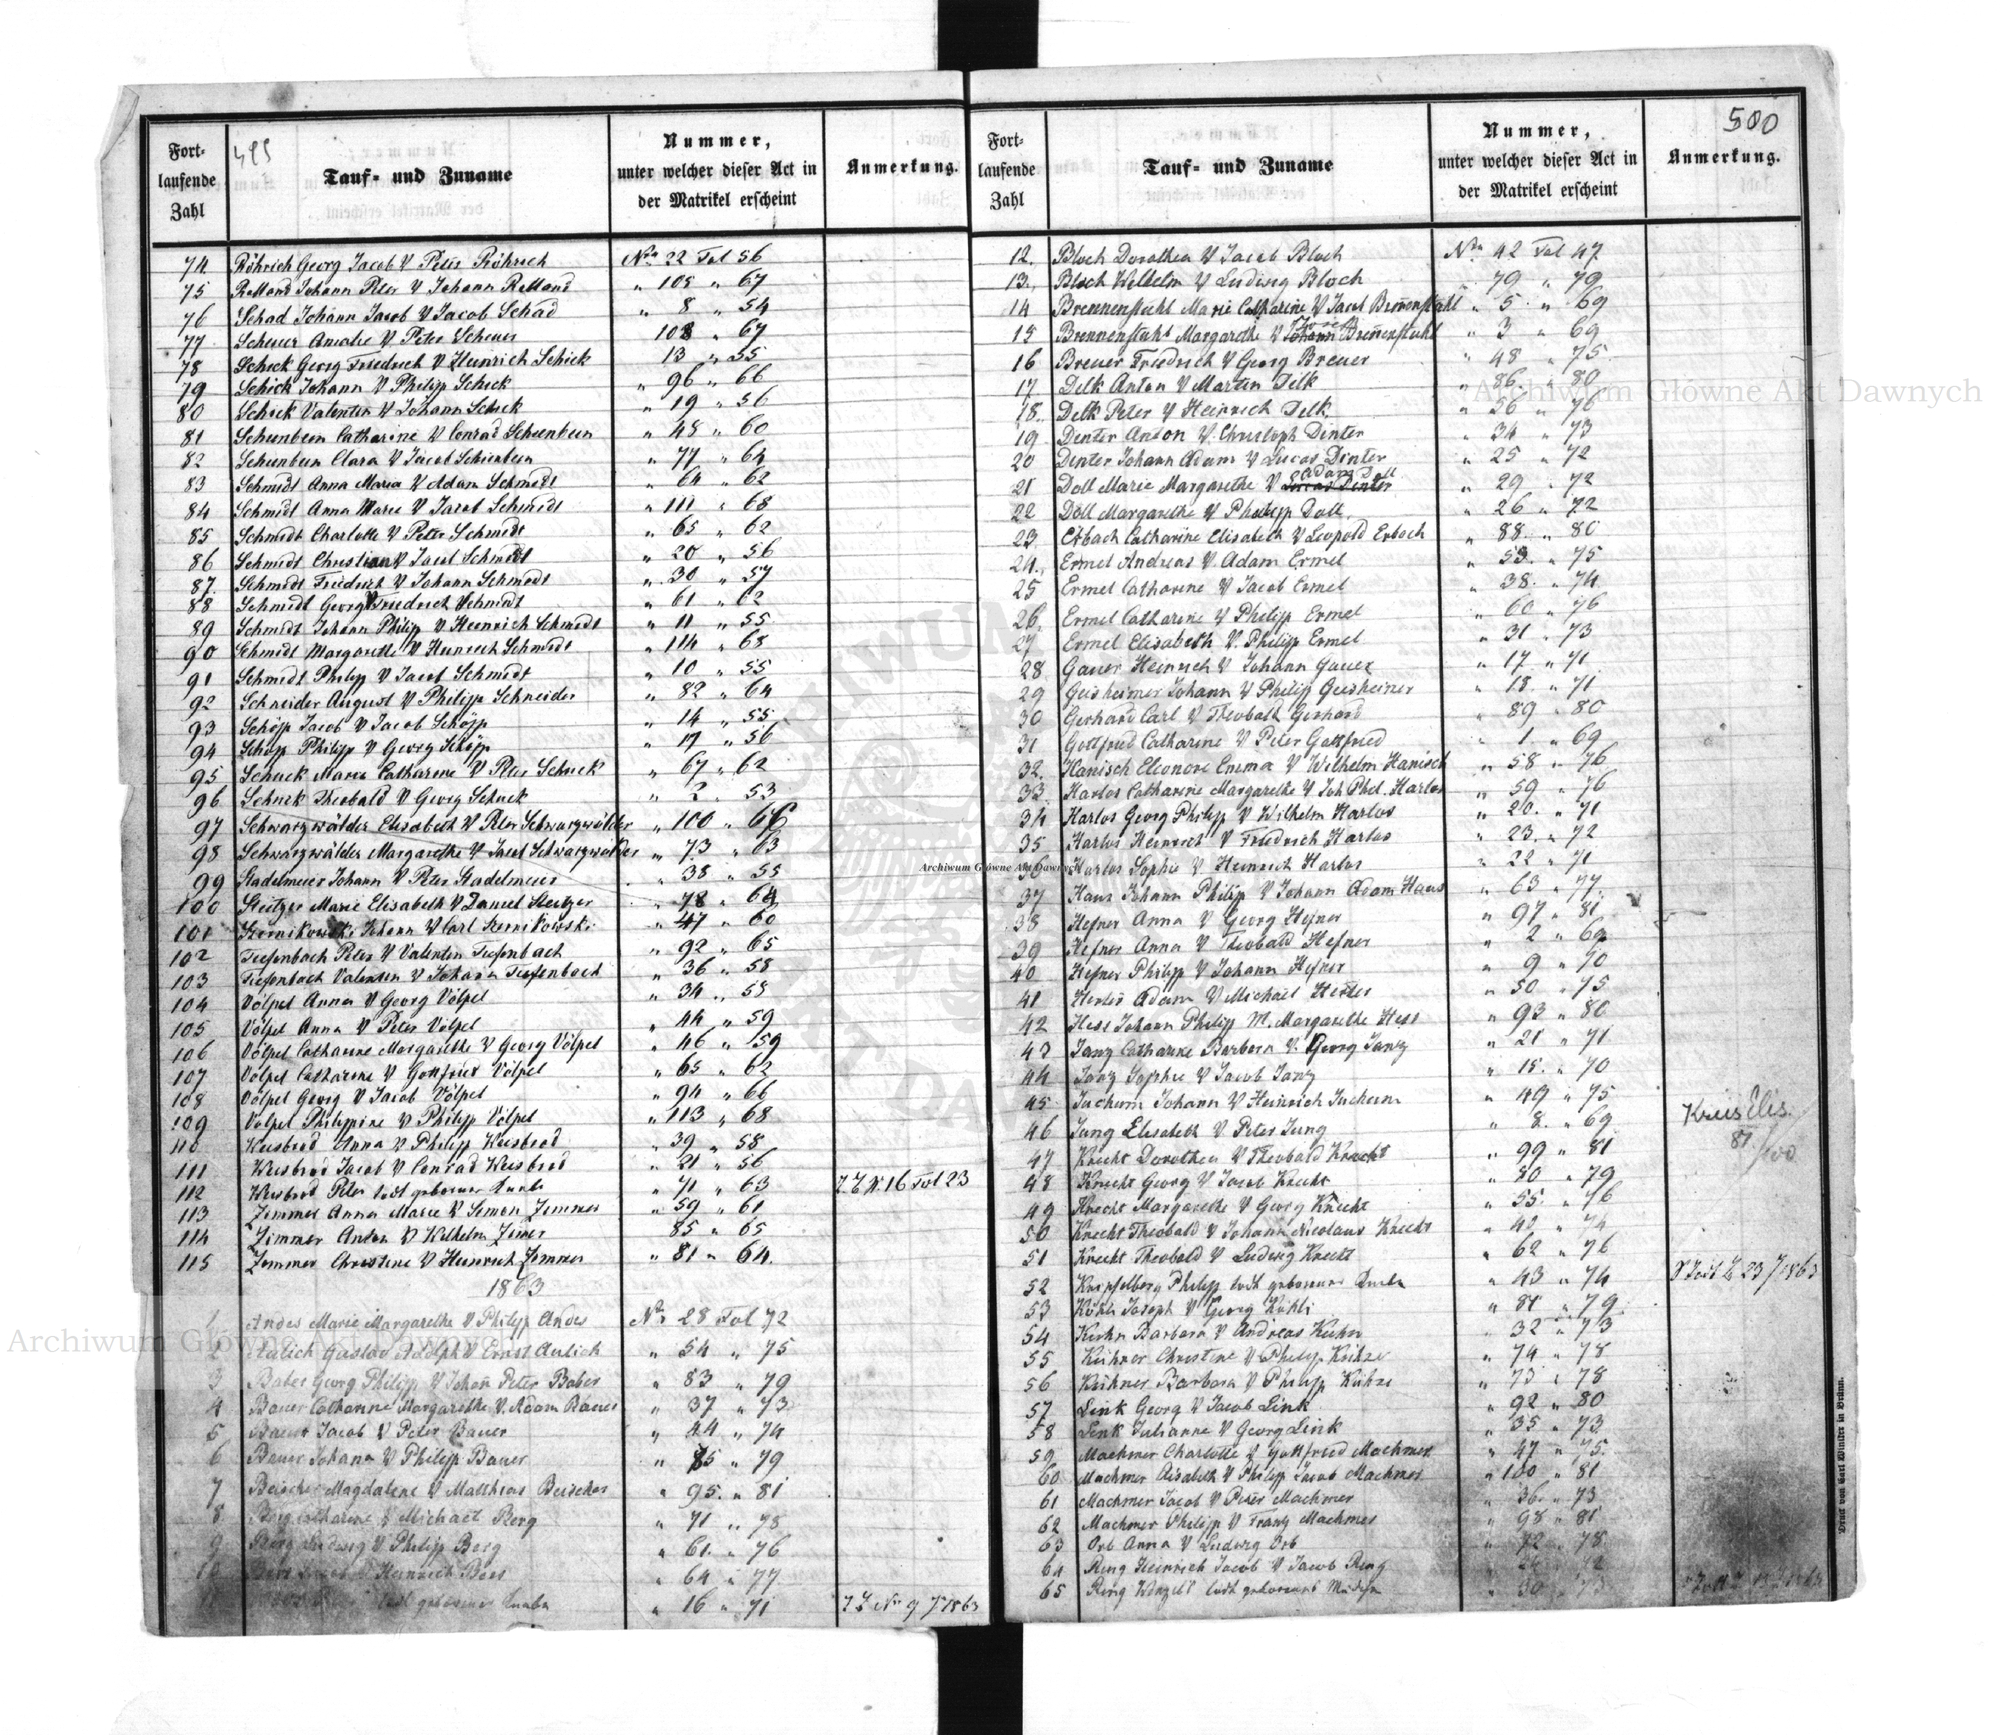 499
Fort-
laufende
Zahl
Tauf- und Zuname
Nummer,
unter welcher dieser Act in
der Matrikel erscheint
Anmerkung.
74 Röhrich Georg Jacob V Peter Röhrich Nro 22 Fol 56
75 Rolland Johann Peter V Johann Rolland " 105 " 67
76 Schad Johann Jacob V Jacob Schad " 8 " 54
77 Scheuer Amalie V Peter Scheuer 102 " 67
78 Schick Georg Friedrich V Heinrich Schick 13 " 55
79 Schick Johann V Philipp Schick " 96 " 66
80 Schick Valentin V Johann Schick " 19 " 56
81 Schienbein Catharine V Conrad Schienbein " 48 " 60
82 Schienbein Clara V Jacob Schienbein " 77 " 64
83 Schmidt Anna Maria V Adam Schmidt " 64 " 62
84 Schmidt Anna Marie V Jacob Schmidt " 111 " 68
85 Schmidt Charlotte V Peter Schmidt " 65 " 62
86 Schmidt Christian V Jacob Schmidt " 20 " 56
87. Schmidt Friedrich V Johann Schmidt " 30 " 57
88 Schmidt Georg V Friedrich Schmidt " 61 " 62
89 Schmidt Johann Philipp V Heinrich Schmidt " 11 " 55
90 Schmidt Margarethe V Heinrich Schmidt " 114 " 68
91 Schmidt Philipp V Jacob Schmidt " 10 " 55
92 Schneider August V Philipp Schneider " 82 " 64
93 Schöpp Jacob V Jacob Schöpp " 14 " 55
94 Schöpp Philipp V Georg Schöpp " 17 " 56
95 Schuck Marie Catharine V Peter Schuck " 67 " 62
96 Schuck Theobald V Georg Schuck " 2 " 53
97 Schwarzwälder Elisabeth V Peter Schwarzwälder " 100 " 66
98 Schwarzwälder Margarethe V Jacob Schwarzwälder " 73 " 63
99 Stadelmeier Johann V Peter Stadelmeier " 38 " 55
100 Steitzer Marie Elisabeth V Daniel Steitzer " 78 " 64
101 Szernikowski Johann V Carl Szernikowski " 47 " 60
102 Tiefenbach Peter V Valentin Tiefenbach " 92 " 65
103 Tiefenbach Valentin V Johann Tiefenbach " 36 " 58
104 Völpel Anna V Georg Völpel " 34 " 58
105 Völpel Anna V Peter Völpel " 44 " 59
106 Völpel Catharine Margarethe V Georg Völpel " 46 " 59
107 Völpel Catharine V Gottfried Völpel " 65 " 62
108 Völpel Georg V Jacob Völpel " 94 " 66
109 Völpel Philippine V Philipp Völpel " 113 " 68
110 Weisbrod Anna V Philipp Weisbrod " 39 " 58
111 Weisbrod Jacob V Conrad Weisbrod " 21 " 56
112 Weisbrod Peter todt geborener Knabe " 71 " 63 16 Fol 23
113 Zimmer Anna Marie V Simon Zimmer " 59 " 61
114 Zimmer Anton V Wilhelm Zimer 85 " 65
115 Zimmer Christine V Heinrich Zimmer " 81 " 64.
1863
1 Andes Marie Margarethe V Philipp Andes Nro 28 Fol 72
2 Aulich Gustav Adolph V Ernst Aulich " 54 " 75
3 Baber Georg Philipp V Johan Peter Baber " 83 " 79
4 Bauer Catharine Margarethe V. Adam Bauer " 37 " 73
5 Bauer Jacob V Peter Bauer " 44 " 74
6 Bauer Johann V Philipp Bauer " 85 " 79
7 Beischer Magdalene V Matthias Beischer " 95. " 81
8 Berg Catharine V Michael Berg " 71 " 78
9 Berg Ludwig V Philipp Berg " 61. " 76
10 Bees Jacob V Heinrich Bees " 64 " 77
todt geborener Knabe " 16 " 71 Nro 9 1863
500
Fort-
laufende
Zahl
Tauf- und Zuname
Nummer,
unter welcher dieser Act in
der Matrikel erscheint
Anmerkung.
12. Bloch Dorothea V Jacob Bloch Nro 42 Fol 47
13. Bloch Wilhelm V Ludwig Bloch " 79 " 79
14 Brennenstuhl Marie Catharine V Jacob Brennenstuhl " 5 " 69
15 Brennenstuhl Margarethe V Johann Brennenstuhl " 3 " 69
16 Breuer Friedrich V Georg Breuer " 48 " 75
17 Delk Anton V Martin Delk " 86. " 80
18. Delk Peter V Heinrich Delk " 56 " 76
19 Dinter Anton V. Christoph Dinter " 34 " 73
20 Dinter Johann Adam V Lucas Dinter " 25 " 72
Adam Doll
21 Doll Marie Margarethe V Lucas Dinter " 29 " 72
22 Doll Margarethe V Philipp Doll. " 26 " 72
23 Erbach Catharine Elisabeth V Leopold Erbach " 88. " 80
24. Ermel Andreas V. Adam Ermel " 53. " 75
25 Ermel Catharine V Jacob Ermel " 38. " 74
26. Ermel Catharine V Philipp Ermel " 60 " 76
27 Ermel Elisabeth V. Philipp Ermel " 31 " 73
28 Gauer Heinrich V Johann Gauer " 17 " 71
29 Geisheimer Johann V Philipp Geisheimer " 18. " 71
30 Gerhard Carl V Theobald Gerhard " 89 " 80
31 Gottfried Catharine V Peter Gottfried " 1 " 69
32. Hanisch Eleonore Emma V Wilhelm Hanisch " 58 " 76
33. Harlos Catharine Margarethe V Joh Phil. Harlos " 59 " 76
34 Harlos Georg Philipp V Wilhelm Harlos " 20. " 71
35 Harlos Heinrich V Friedrich Harlos " 23. " 72
36 Harlos Sophie V Heinrich Harlos " 22 " 71
37 Haus Johann Philipp V Johann Adam Haus " 63 " 77.
38 Hefner Anna V Georg Hefner " 97 " 81
39 Hefner Anna V Theobald Hefner " 2 " 69
40 Hefner Philipp V Johann Hefner " 9 " 70
41 Herter Adam V Michael Herter " 50 " 75
42 Hess Johann Philipp M. Margarethe Hess " 93 " 80
43 Janz Catharine Barbara V. Georg Janz " 21 " 71
44 Janz Sophie V Jacob Janz " 15. " 70
45 Juchum Johann V Heinrich Juchum " 49 " 75
46 Jung Elisabeth V Peter Jung " 8. " 69 Kreis Elis. 81/100
47 Knecht Dorothea V Theobald Knecht " 99 " 81
48 Knecht Georg V Jacob Knecht " 80 " 79
49 Knecht Margarethe V Georg Knecht " 55. " 76
50 Knecht Theobald V Johann Nicolaus Knecht " 42 " 74
51 Knecht Theobald V Ludwig Knecht " 62 " 76
52 Knipfelberg Philipp todt geborener Knabe " 43 " 74 23/1863
53 Köhli Joseph V Georg Köhli " 81 " 79
54 Kuhn Barbara V Andreas Kuhn " 32 " 73
55 Kühner Christine V Philipp Kühner " 74 " 78
56 Kühner Barbara V Philipp Kühner " 73 " 78
57 Link Georg V Jacob Link " 92 " 80
58 Link Julianne V Georg Link " 35 " 73
59 Machmer Charlotte V Gottfried Machmer " 47 " 75.
60 Machmer Elisabeth V Philipp Jacob Machmer " 100 " 81
61 Machmer Jacob V Peter Machmer " 36. " 73
62 Machmer Philipp V Franz Machmer " 98 " 81
63 Orb Anna V Ludwig Orb " 72 " 78
64 Reng Heinrich Jacob V Jacob Reng " 24 " 72
65 Reng todt geborenes Mädchen " 30 " 73
Druck von Carl Winiker in Brünn.
Archiwum Główne Akt Dawnych
Archiwum Główne Akt Dawnych
Archiwum Główne Akt Dawnych